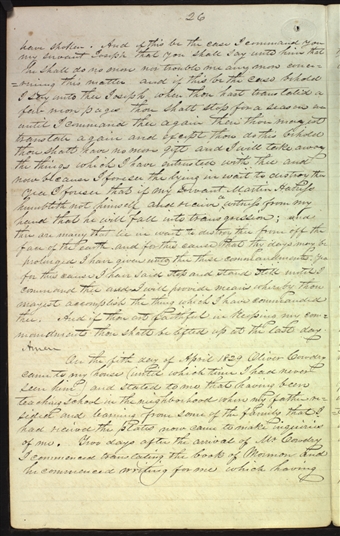 26
have spoken. And if this be the case I command you
my servant Joseph that you shall say unto him that
he shall do no more nor trouble me any more conce-
rning this matter and if this be the case behold
I say unto thee Joseph, when thou hast translated a
few more pages thou shalt stop for a season even
until I command thee again then thou mayest
translate again and except thou do this behold
thou shalt have no more gift and I will take away
the things which I have intrusted with thee and
now because I foresee the lying in wait to destroy thee
yea I foresee that if my servant Martin Harris
humbleth not himself and receive a witness from my
hand that he will fall into transgression; and
there are many that lie in wait to destroy thee from off the
face of the Earth and for this cause that thy days may be
prolonged I have given unto thee these commandments; yea
for this cause I have said stop and stand still until I
command thee and I will provide means whereby thou
mayest accomplish the thing which I have commanded
thee. And if thou art faithful in keeping my com-
mandments thou shalt be lifted up at the last day
Amen
On the fifth day of April 1829 Oliver Cowdery
came to my house, (until which time I had never
seen him) and stated to me that having been
teaching school in the neighborhood where my father re-
sided and learning from some of the family that I
had received the plates now came to make inquiries
of me. Two days after the arrival of Mr Cowdery
I commenced translating the book of Mormon and
he commenced writing for me which having